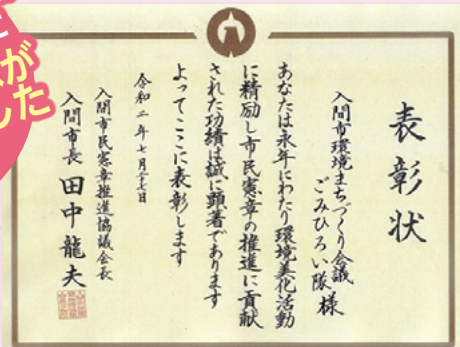 と
が
した
表彰状
入間市環境まちづくり会議
ごみひろい隊 様
あなたは永年にわたり環境美化活動
に精励し市民憲章の推進に貢献
された功績は誠に顕著であります
よってここに表彰します
令和二年七月
入間市民憲章推進協議会長
入間市長 田中龍夫